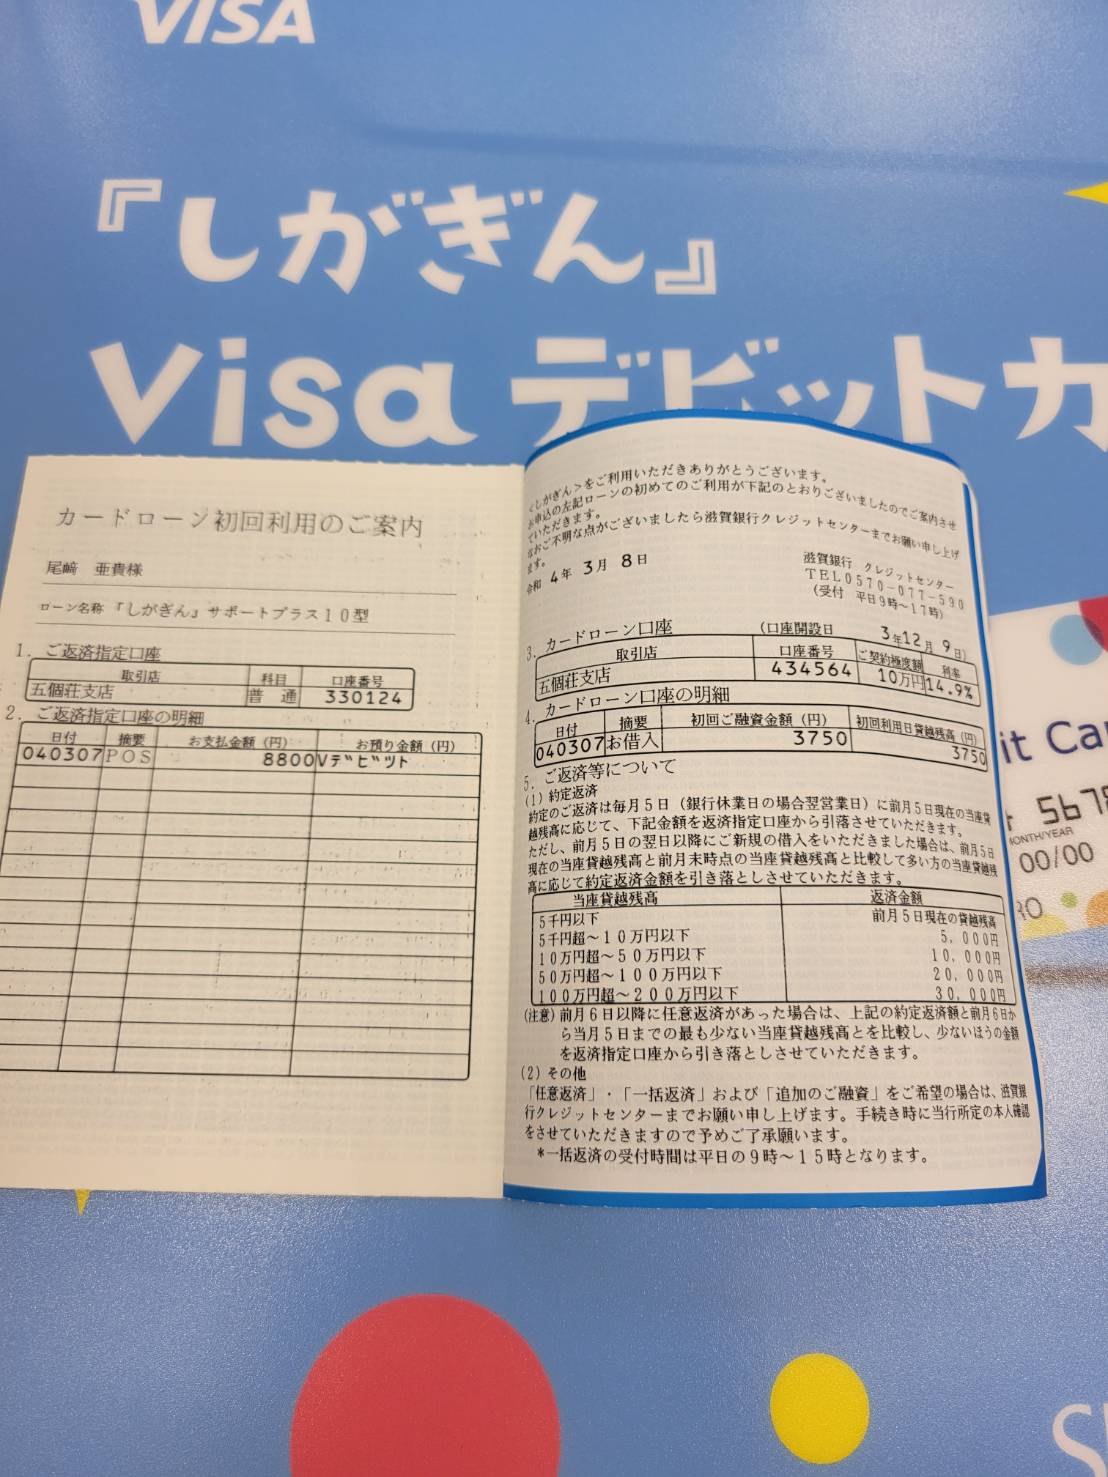 VISA
『しがぎん』
Visa デビットカ
カードローン初回利用のご案内
尾﨑 亜貴様
ローン名称 『しがぎん』サポートプラス10型
1. ご返済指定口座
取引店 科目 口座番号
五個荘支店 普通 330124
2. ご返済指定口座の明細
日付 摘要 お支払金額(円) お預り金額(円)
040307 POS 8800 Vデビツト
<しがぎん>をご利用いただきありがとうございます。
お申込の左記ローンの初めてのご利用が下記のとおりございましたのでご案内させ
ていただきます。
なおご不明な点がございましたら滋賀銀行クレジットセンターまでお願い申し上げ
ます。
令和 4年 3月 8日
滋賀銀行 クレジットセンター
TEL0570-077-590
(受付 平日9時~17時)
3. カードローン口座 (口座開設日 3年12月 9日)
取引店 口座番号 ご契約極度額 利率
五個荘支店 434564 10万円 14.9%
4. カードローン口座の明細
日付 摘要 初回ご融資金額(円) 初回利用日貸越残高(円)
040307 お借入 3750 3750
5. ご返済等について
(1)約定返済
約定のご返済は毎月5日(銀行休業日の場合翌営業日)に前月5日現在の当座貸
越残高に応じて、下記金額を返済指定口座から引落させていただきます。
ただし、前月5日の翌日以降にご新規の借入をいただきました場合は、前月5日
現在の当座貸越残高と前月末時点の当座貸越残高と比較して多い方の当座貸越残
高に応じて約定返済金額を引き落としさせていただきます。
当座貸越残高 返済金額
5千円以下 前月5日現在の貸越残高
5千円超~10万円以下 5,000円
10万円超~50万円以下 10,000円
50万円超~100万円以下 20,000円
100万円超~200万円以下 30,000円
(注意)前月6日以降に任意返済があった場合は、上記の約定返済額と前月6日か
ら当月5日までの最も少ない当座貸越残高とを比較し、少ないほうの金額
を返済指定口座から引き落としさせていただきます。
(2)その他
「任意返済」・「一括返済」および「追加のご融資」をご希望の場合は、滋賀銀
行クレジットセンターまでお願い申し上げます。手続き時に当行所定の本人確認
をさせていただきますので予めご了承願います。
*一括返済の受付時間は平日の9時~15時となります。
it Ca
5678
MONTH/YEAR
00/00
RO